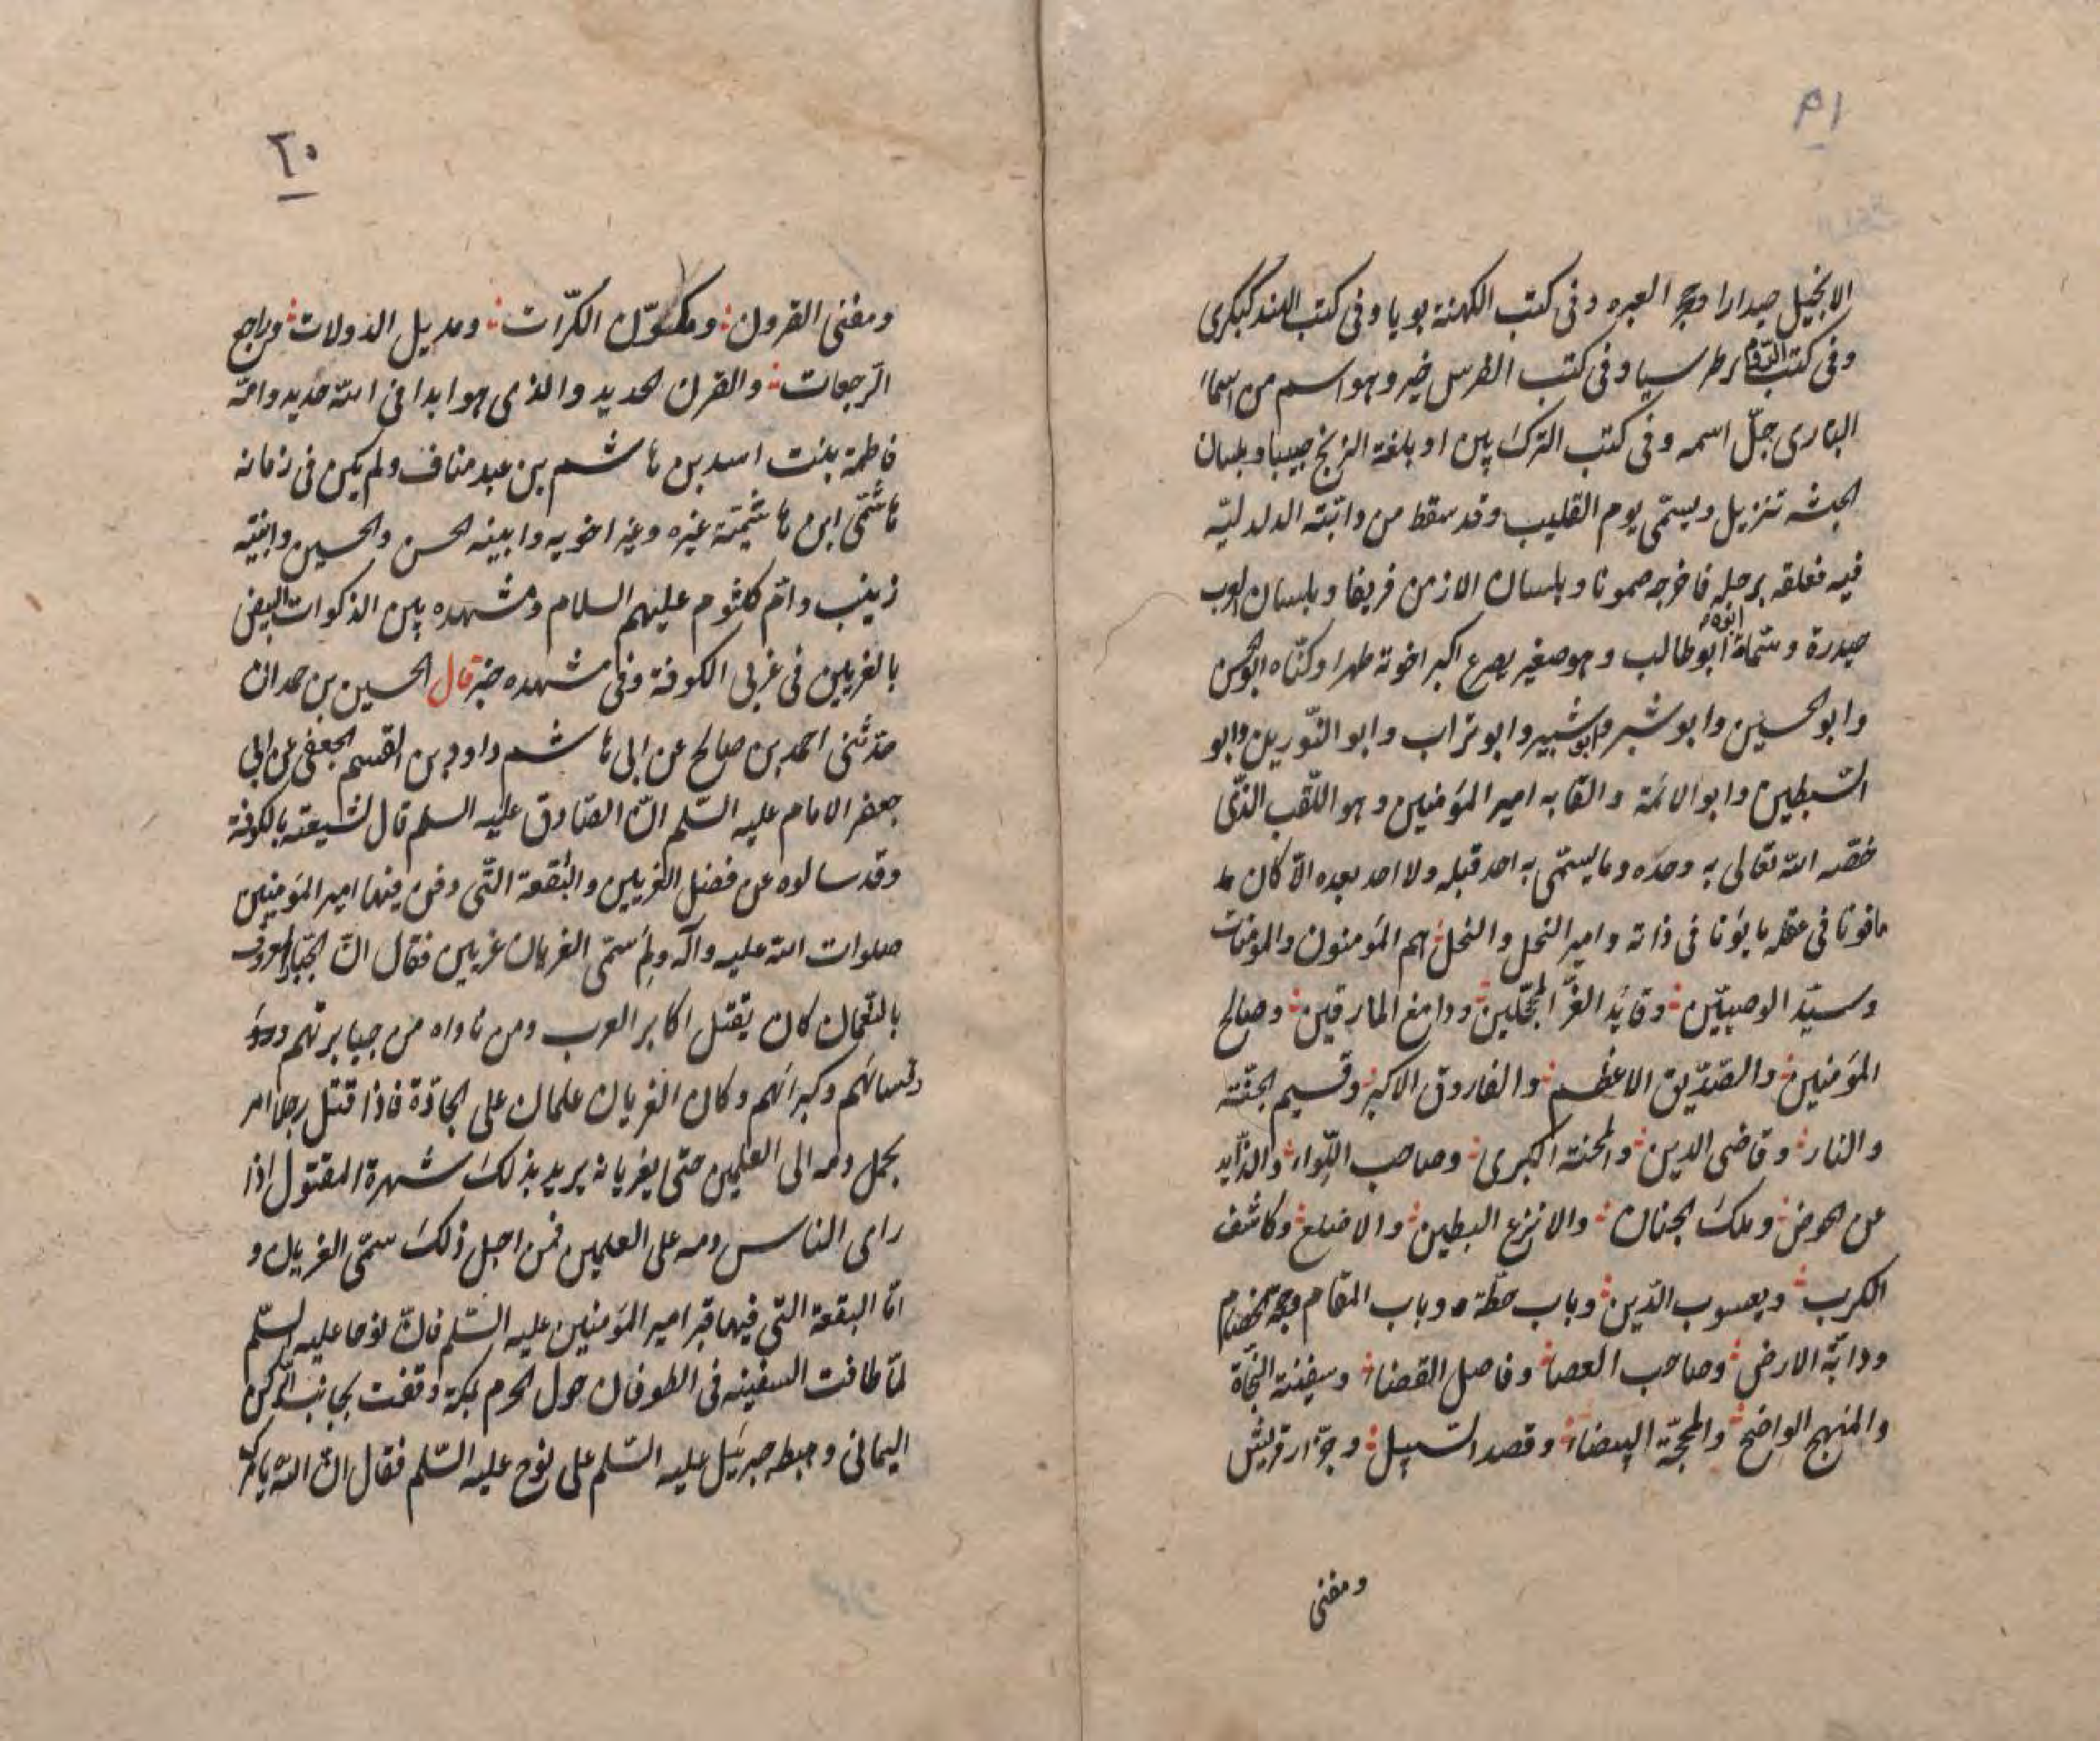 ١٩
الانجيل صيدارا وحجر العبره وفى كتب الكهنة بويا وفى كتب الهند كبكرى
وفى كتب الروم برطرسيا وفى كتب الطرس خير وهو اسم من اسماء
البارى جلّ اسمه وفى كتب الترك پين او بلغة الزنج حيبا و بلسان
الحبشه تنزيل ويسمّى يوم القليب وقد سقط من دابّته الدلدليّه
فيه فعلقه برجله فاخرجه ميمونا و بلسان الارمن فريقا و بلسان العرب
حيدرة وسمّاه ابوه ابو طالب وهو صغير يصرع اكبر اخوته ظهرا وكنّاه ابو الحسن
وابو الحسين وابو شبر وابو شبير وابو تراب وابو النّورين وابو
السّبطين وابو الائمة والقابه امير المؤمنين وهو اللّقب الذّى
خصّه الله تعالى به وحده وما يسمّى به احد قبله ولا احد بعده الّا كان
مافونا فى عقله مابونا فى ذاته وامير النحل والنحل هم المؤمنون والمؤمنات
وسيّد الوصيّين وقايد الغرّ المحجّلين ودامغ المارقين وصالح
المؤمنين والصّدّيق الاعظم والفاروق الاكبر وقسيم الجنّة
والنار وقاضى الدين والمحنة الكبرى وصاحب اللّواء والذّايد
عن الحوض وملك الجنان والانزع البطين والاصلع وكاشف
الكرب ويعسوب الدّين وباب حطّة وباب المقام وحجة الخصام
ودابّة الارض وصاحب العصا وفاصل القضاء وسفينة النجاة
والمنهج الواضح والمحجّة البيضاء وقصد السّبيل وجزّار قريش
ومفنى
٢٠
ومفنى القرون ومكرّر الكرّات ومديل الدولات وراجع
الرّجعات والقرن الحديد والذى هو ابدا فى الله جديد وامّه
فاطمة بنت اسد بن هاشم بن عبد مناف ولم يكن فى زمانه
هاشمّى ابن هاشميّة غيره وغير اخويه وابنيه الحسن والحسين وابنتيه
زينب وامّ كلثوم عليهم السلام ومشهده بين الذكوات البيض
بالغريين فى غربى الكوفة وفى مشهده خبر قال الحسين بن حمدان
حدّثنى احمد بن صالح عن ابى هاشم داود بن القسم الجعفى عن ابى
جعفر الامام عليه السّلم انّ الصّادق عليه السلم قال لشيعته بالكوفة
وقد سالوه عن فضل الغريين والبقعة التّى دفن فيها امير المؤمنين
صلوات الله عليه وآله ولم سمّى الغريان غريين فقال انّ الجبّار المعروف
بالنّعمان كان يقتل اكابر العرب ومن ناواه من جبابرتهم
وكبرائهم وكان الغريان علمان على الجادّة فاذا قتل رجلا امر
بحمل دمه الى العلمين حتّى يغريانه يريد بذلك شهرة المقتول اذا
راى الناس دمه على العلمين فمن اجل ذلك سمّى الغريان و
امّا البقعة التّى فيها قبر امير المؤمنين عليه السّلم فانّ نوحا عليه السّلم
لمّا طافت السفينه فى الطوفان حول الحرم بمكة وقفت بجانب الركن
اليمانى وهبط جبرئيل عليه السّلم على نوح عليه السّلم فقال انّ الله يامرك